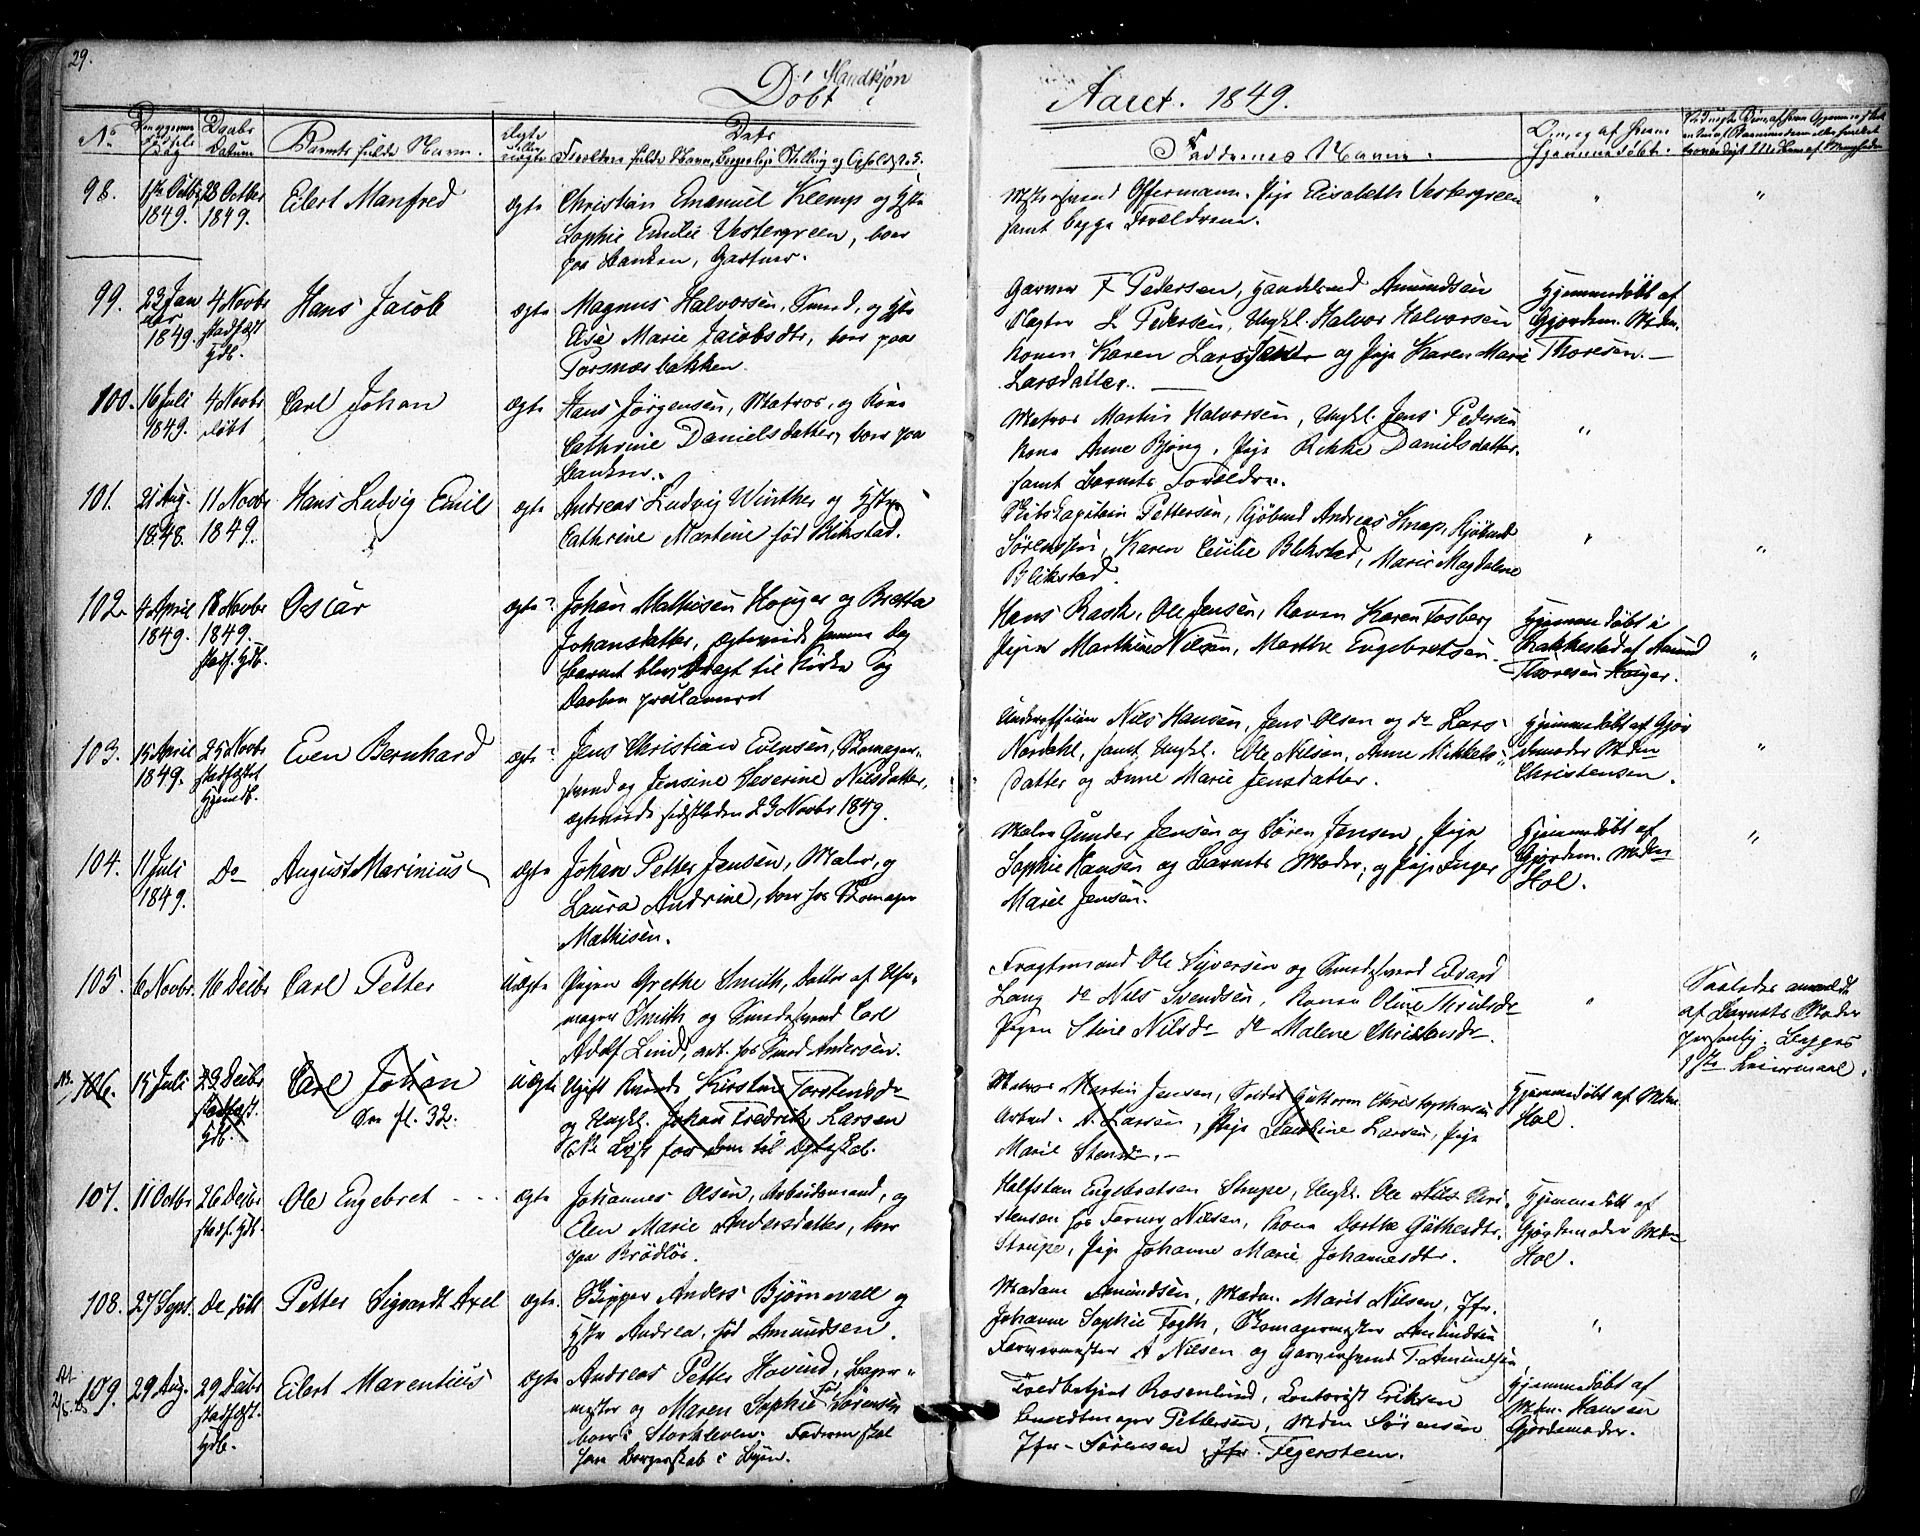 29.
Døbt Mandkjøn
Aaret. 1849.
No
Daabs Datum
Barnets fulde Navn.
Ægte eller uægte
Forældres fulde Navn, borgerlige Stilling og
Faddernes Navne.
Om, og af hvem hjemmedøbt.
98.
1849.
28 October 1849.
Eilert Manfred
ægte
Christian Emanuel Klemp og Hstr
Sophie Emilie Vestergreen, boer
paa Banken, Gartner.
Offermann. Pige Elisabeth Vestergreen
samt begge Forældrene.
"
"
99.
23 Januar 1849.
4 Novbr stadfæst hdb.
Hans Jacob
ægte
Magnus Halvorsen, Smed, og Hstr
Elise Marie Jacobsdtr, boer paa
Porsnæsbakken.
Garver F Pedersen, Amundsen
Slagter L Pedersen, Ungkl. Halvor Halvorsen
Konen Karen og Pige Karen Marie
Larsdatter.
Hjemmedøbt af
Gjordem. Mdm.
Thoresen.
100.
16 Juli 1849.
4 Novbr døbt
Carl Johan
ægte
Hans Jörgensen, Matros, og Kone
Cathrine Danielsdatter, boer paa
Banken.
Matros Martin Halvorsen, Ungkl. Jens Pedersen
Kone Anne Bjong, Pige Rikke Danielsdatter,
samt Barnets Forældre.
"
101.
21 Aug. 1848.
11 Novbr 1849.
Hans Ludvig Emil
ægte
Andreas Ludvig Winther og Hstr
Cathrine Martine fød Blikstad.
Skibs Capitain Pettersen, Kjøbmd Andreas Knap, Kjøbmd
Sørensen, Karen Cecilie Blikstad, Marie Magdalene
Blikstad.
"
"
102.
4 April 1849.
18 Novbr 1849. stadf. hdb.
Oscar
ægte?
Johan Mathisen Houger og Bretta
Johansdatter, ægteviede samme Dag
Barnet blev bragt til Kirke og
Daaben proclameret
Hans Rask, Ole Jensen, Konen Karen Fosberg
Pigen Marthine Nilsen, Marthe Engebretsen.
Hjemmedøbt i
Rakkestad af Amund
Thoresen Houger.
"
103.
15 April 1849.
25 Novbr stadfæstet hjemdb.
Even Bernhard
ægte?
Jens Christian Evensen, Skomager-
svend og Jensine Severine Nilsdatter,
ægteviede sidstleden 23 Novbr 1849.
Underofficier Nils Hansen, Jens Olsen og do Lars
Nordahl, samt Ungkl. Ole Nilsen, Anne Mikkels-
datter og Anne Marie Jensdatter.
Hjemmedøbt af Gjor-
demoder Mdm
Christensen.
"
104.
11 Juli 1849.
Do
August Marinius
ægte
Johan Petter Jensen, Maler, og
Laura Andrine, boer hos Skomager
Mathisen.
Maler Gunder Jensen og Søren Jensen, Pige
Sophie Hansen og Barnets Moder, og Pige Inger
Marie Jensen.
Hjemmedøbt af
Gjordem. Mdm
Hol.
"
105.
6 Novbr.
16 Decbr
Carl Petter
Uægte
Pigen Grethe Smith, Datter af Uhr-
mager Smith og Smedesvend Carl
Adolf Lind, arb. hos Smed Andersen.
Fragtemand Ole Syversen og Smedesvend Edvard
Lang do Nils Svendsen, Konen Oline Thrulsdr
Pigen Stine Nilsdr do Malene Christensdr.
"
Saaledes anmeldt
af Barnets Moder
personlig. Begges
1ste Leiermaal.
NB. 106.
15 Juli
23 Decbr stadfæst. hdb.
Carl Johan
See fl. 32.
Uægte
Ugift Kirstine Torstensdr
og Ungkl. Johan Fredrik Larsen
NB. Lyst for dem til Ægteskab.
Matros Martin Jensen, Soldat Guttorm Christophersen
Arbmd. A. Larsen, Pige Larsen, Pige
Marie Stensdr.
Hjemmedøbt af Mdm.
Hol.
107.
11 Octbr
26 Decbr stadf. hdb
Ole Engebret
ægte
Johannes Olsen, Arbeidsmand, og
Elen Marie Andersdatter, boer
paa Brödlös.
Halfstan Engebretsen Strupe, Ungkl. Ole Nils Chri-
stensen hos Farver Nilsen, Kone Dorthe Göthesdtr.
Strupe, Pige Johanne Marie Johannesdtr.
Hjemmedøbt af
Gjordemoder Mdm
Hol.
108.
27 Sept.
Do døbt
Petter Sigvardt Axel
ægte.
Skipper Anders Bjørnevall og
Hstr Andrea, fød Amundsen.
Madam Amundsen, Mdm. Marie Nilsen, Jfr.
Johanne Sophie Fogth, Skomagermester Amundsen
Farvermester A Nilsen og Garversvend T. Amundsen
"
109.
29 Aug.
29 Decbr stadfæst. hdb.
Eilert Marentius
ægte
Andreas Petter Hovind, Bager-
mester og Maren Sophie fød Sörensen
boer i Storkleven. Faderen skal
have Borgerskab i Byen.
Toldbetjent Rosenlund, Contorist Eriksen
Bundtmager Pettersen, Mdm Sörensen
Jfr. Sörensen, Jfr. Fegersteen.
Hjemmedøbt af
Mdm. Hansen
Gjordemoder.